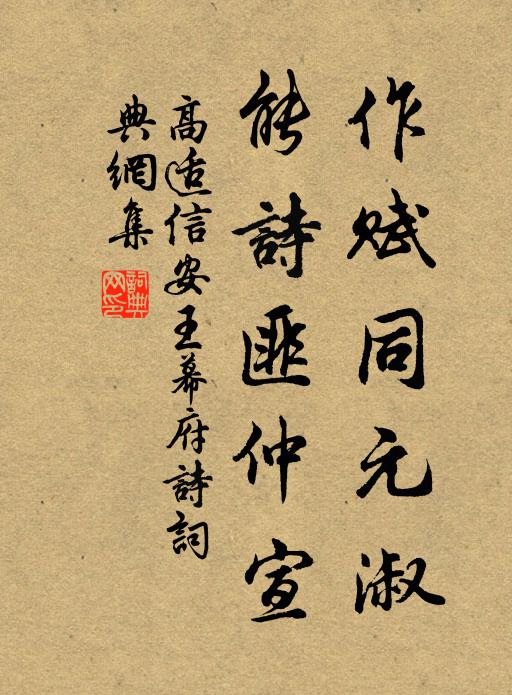 作賦同元淑
能詩匪仲宣
高适信安王幕府詩詞
典網集
詞典网印